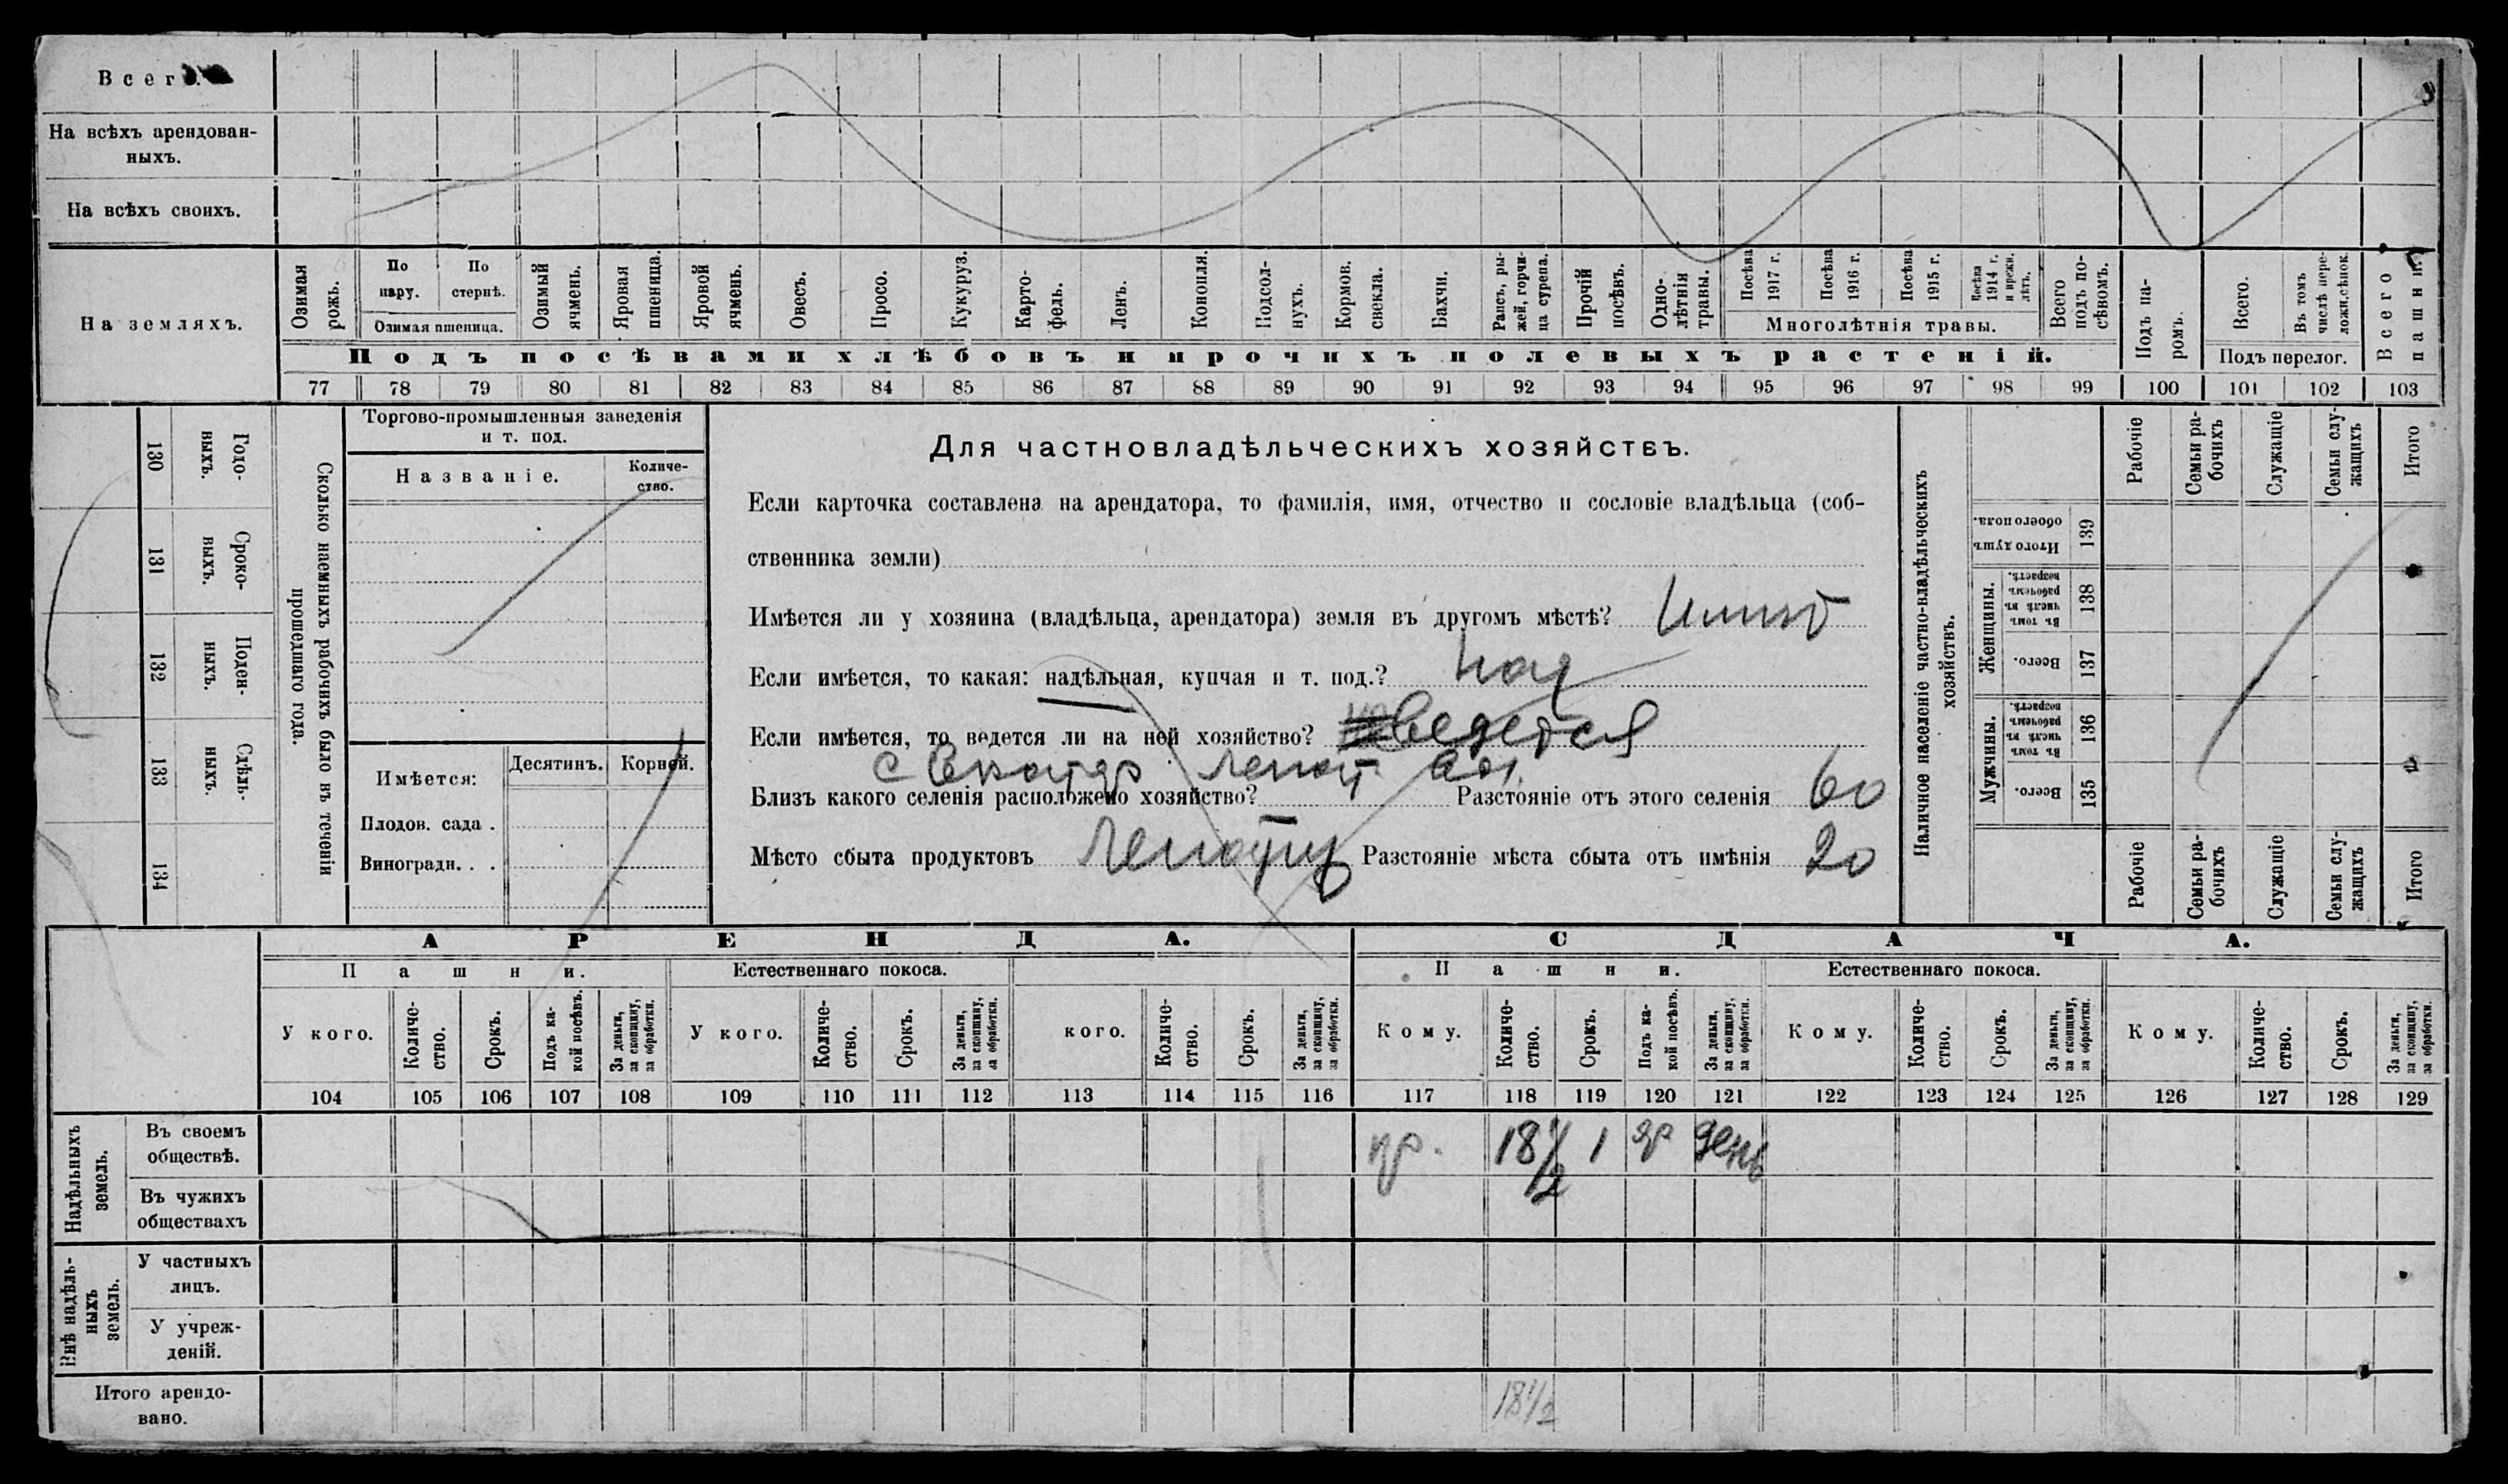 Всего.
На всѣхъ арендован-
ныхъ.
На всѣхъ своихъ.
На земляхъ.
Озимая рожь.
По пару.
По стернѣ.
Озимая пшеница.
Озимый ячмень.
Яровая пшеница.
Яровой ячмень.
Овесъ.
Просо.
Кукуруз.
Карто-
фель.
Ленъ.
Конопля.
Подсол-
нухъ.
Кормов. свекла.
Бахчи.
Рапсъ, ры-
жей, горчи-
ца сурепа.
Прочій посѣвъ.
Одно-
лѣтнія травы.
Посѣва 1917 г.
Посѣва 1916 г.
Посѣва 1915 г.
Посѣва 1914 г. и прежн. лѣтъ.
Многолѣтнія травы.
Всего подъ по-
сѣвомъ.
Подъ па-
ромъ.
Всего.
Въ томъ числѣ пере-
лож.сѣнок.
Подъ перелог.
Всего пашни.
Подъ посѣвами хлѣбовъ и прочихъ полевыхъ растеній.
77 78 79 80 81 82 83 84 85 86 87 88 89 90 91 92 93 94 95 96 97 98 99 100 101 102 103
130 Годо-
ныхъ.
131 Сроко-
выхъ.
132 Поден-
ныхъ.
133 Сдѣль-
ныхъ.
134
Сколько наемныхъ рабочихъ было въ теченіи
прошедшаго года.
Торгово-промышленныя заведенія
и т. под.
Названіе.
Количе-
ство.
Имѣется:
Десятинъ.
Корней.
Плодов. сада .
Виноградн. . .
Для частновладѣльческихъ хозяйствъ.
Если карточка составлена на арендатора, то фамилія, имя, отчество и сословіе владѣльца (соб-
ственника земли)
Имѣется ли у хозяина (владѣльца, арендатора) земля въ другомъ мѣстѣ?
Если имѣется, то какая: надѣльная, купчая и т. под.? над
Если имѣется, то ведется ли на ней хозяйство? ведется
Близъ какого селенія расположено хозяйство? Разстояніе отъ этого селенія 60
Мѣсто сбыта продуктовъ Разстояніе мѣста сбыта отъ имѣнія 20
Наличное населеніе частно-владѣльческихъ
хозяйствъ.
Рабочіе
Семьи ра-
бочихъ
Служащіе
Семьи слу-
жащихъ
Итого
Итого душъ обоего пола. 139
Женщины.
Въ томъ числѣ въ рабочемъ возрастѣ. 138
Всего. 137
Мужчины.
Въ томъ числѣ въ рабочемъ возрастѣ. 136
Всего. 135
Рабочіе
Семьи ра-
бочихъ
Служащіе
Семьи слу-
жащихъ
Итого
АРЕНДА.
СДАЧА.
Пашни.
Естественнаго покоса.
Пашни.
Естественнаго покоса.
У кого.
Количе-
ство.
Срокъ.
Подъ ка-
кой посѣвъ.
За деньги, за скопщину, за обработки.
У кого.
Количе-
ство.
Срокъ.
За деньги, за скопщину, за обработки.
кого.
Количе-
ство.
Срокъ.
За деньги, за скопщину, за обработки.
Кому.
Количе-
ство.
Срокъ.
Подъ ка-
кой посѣвъ.
За деньги, за скопщину, за обработки.
Кому.
Количе-
ство.
Срокъ.
За деньги, за скопщину, за обработки.
Кому.
Количе-
ство.
Срокъ.
За деньги, за скопщину, за обработки.
104 105 106 107 108 109 110 111 112 113 114 115 116 117 118 119 120 121 122 123 124 125 126 127 128 129
Надѣльныхъ
земель.
Въ своемъ
обществѣ.
18 1/2 1
Въ чужихъ
обществахъ
Внѣ надѣль-
ныхъ
земель.
У частныхъ
лицъ.
У учреж-
деній.
Итого арендо-
вано.
18 1/2